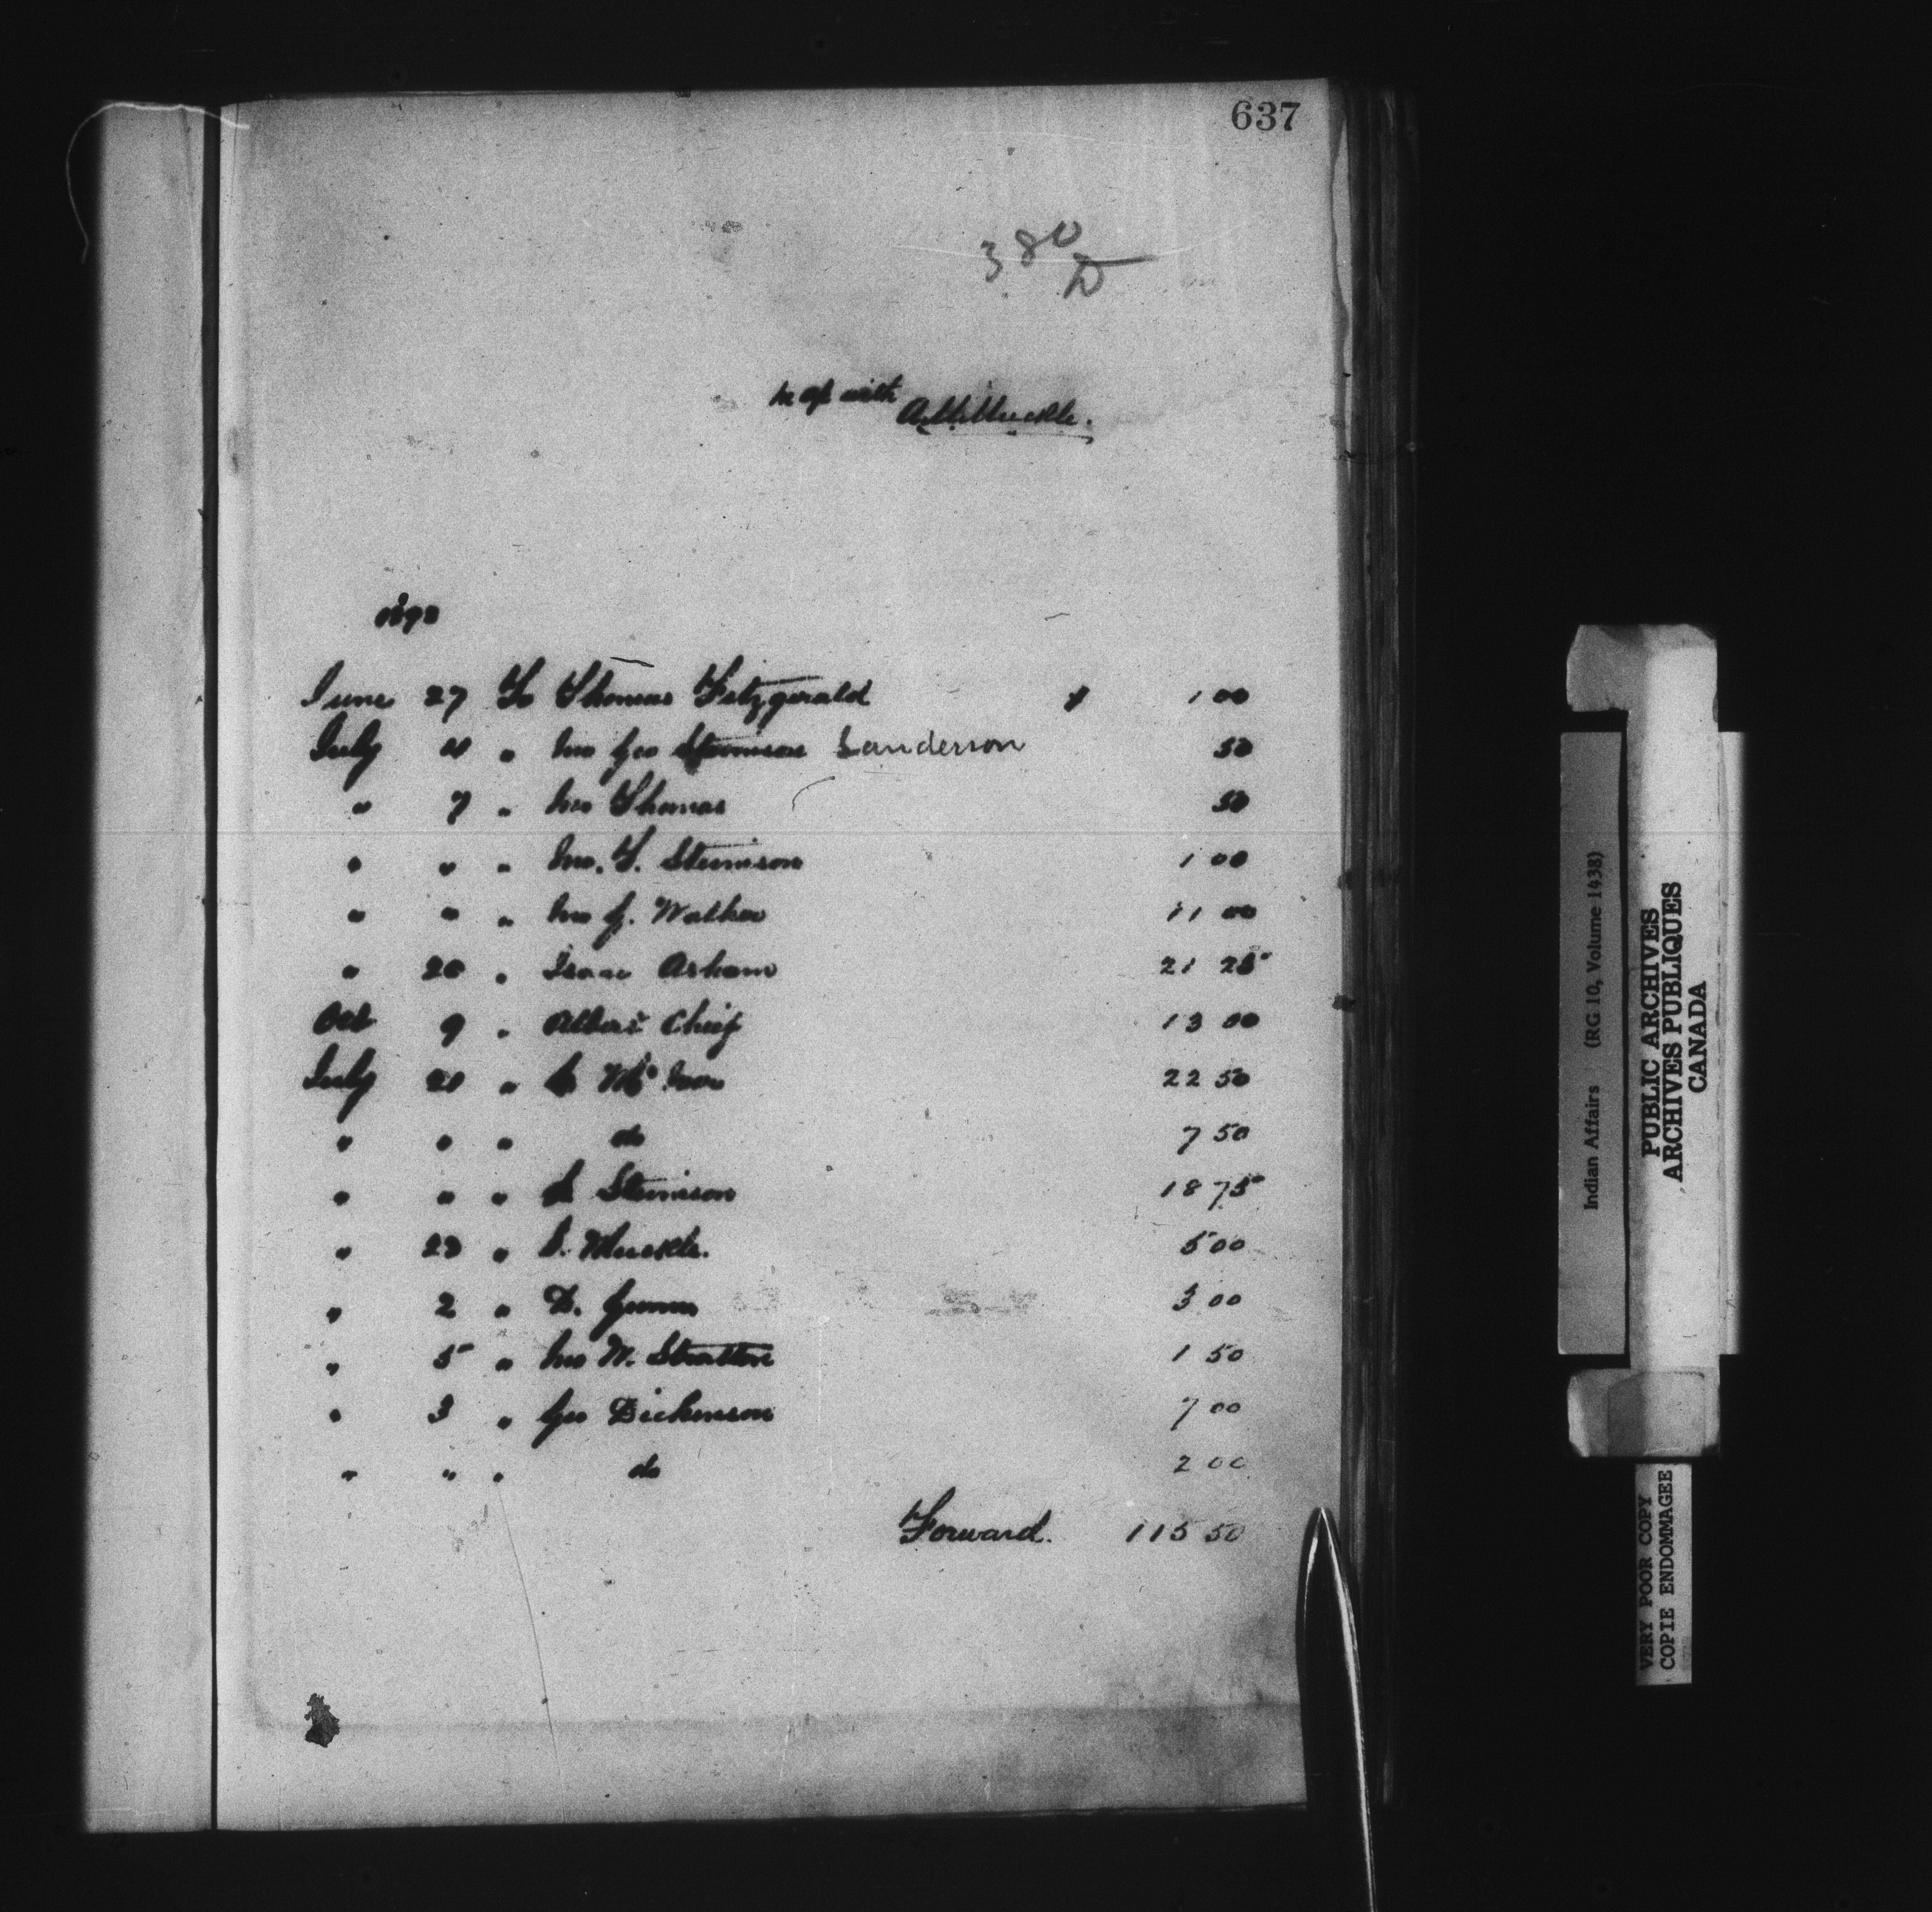 637
380
D
In a/c with
A. M. Muckle.
1890
June 27 To Thomas Fitzgerald $ 1 00
July 4 " Mrs Geo Stevenson Sanderson 50
" 7 " Mrs Thomas 50
" " " Mrs. T. Stemison 1 00
" " " Mrs J. Walker 11 00
" 20 " Isaac Asham 21 25
Oct 9 " Albert Chief 13 00
July 21 " McIvor 22 50
" " " do 7 50
" " " Stemison 18 75
" 23 " Muckle. 5 00
" 2 " D. Gunn 3 00
" 5 " Mrs W. Stratton 1 50
" 3 " Geo Dickenson 7 00
" " " do 2 00
Forward. 115 50
Indian Affairs (RG 10, Volume 1438)
PUBLIC ARCHIVES
ARCHIVES PUBLIQUES
CANADA
VERY POOR COPY
COPIE ENDOMMAGEE